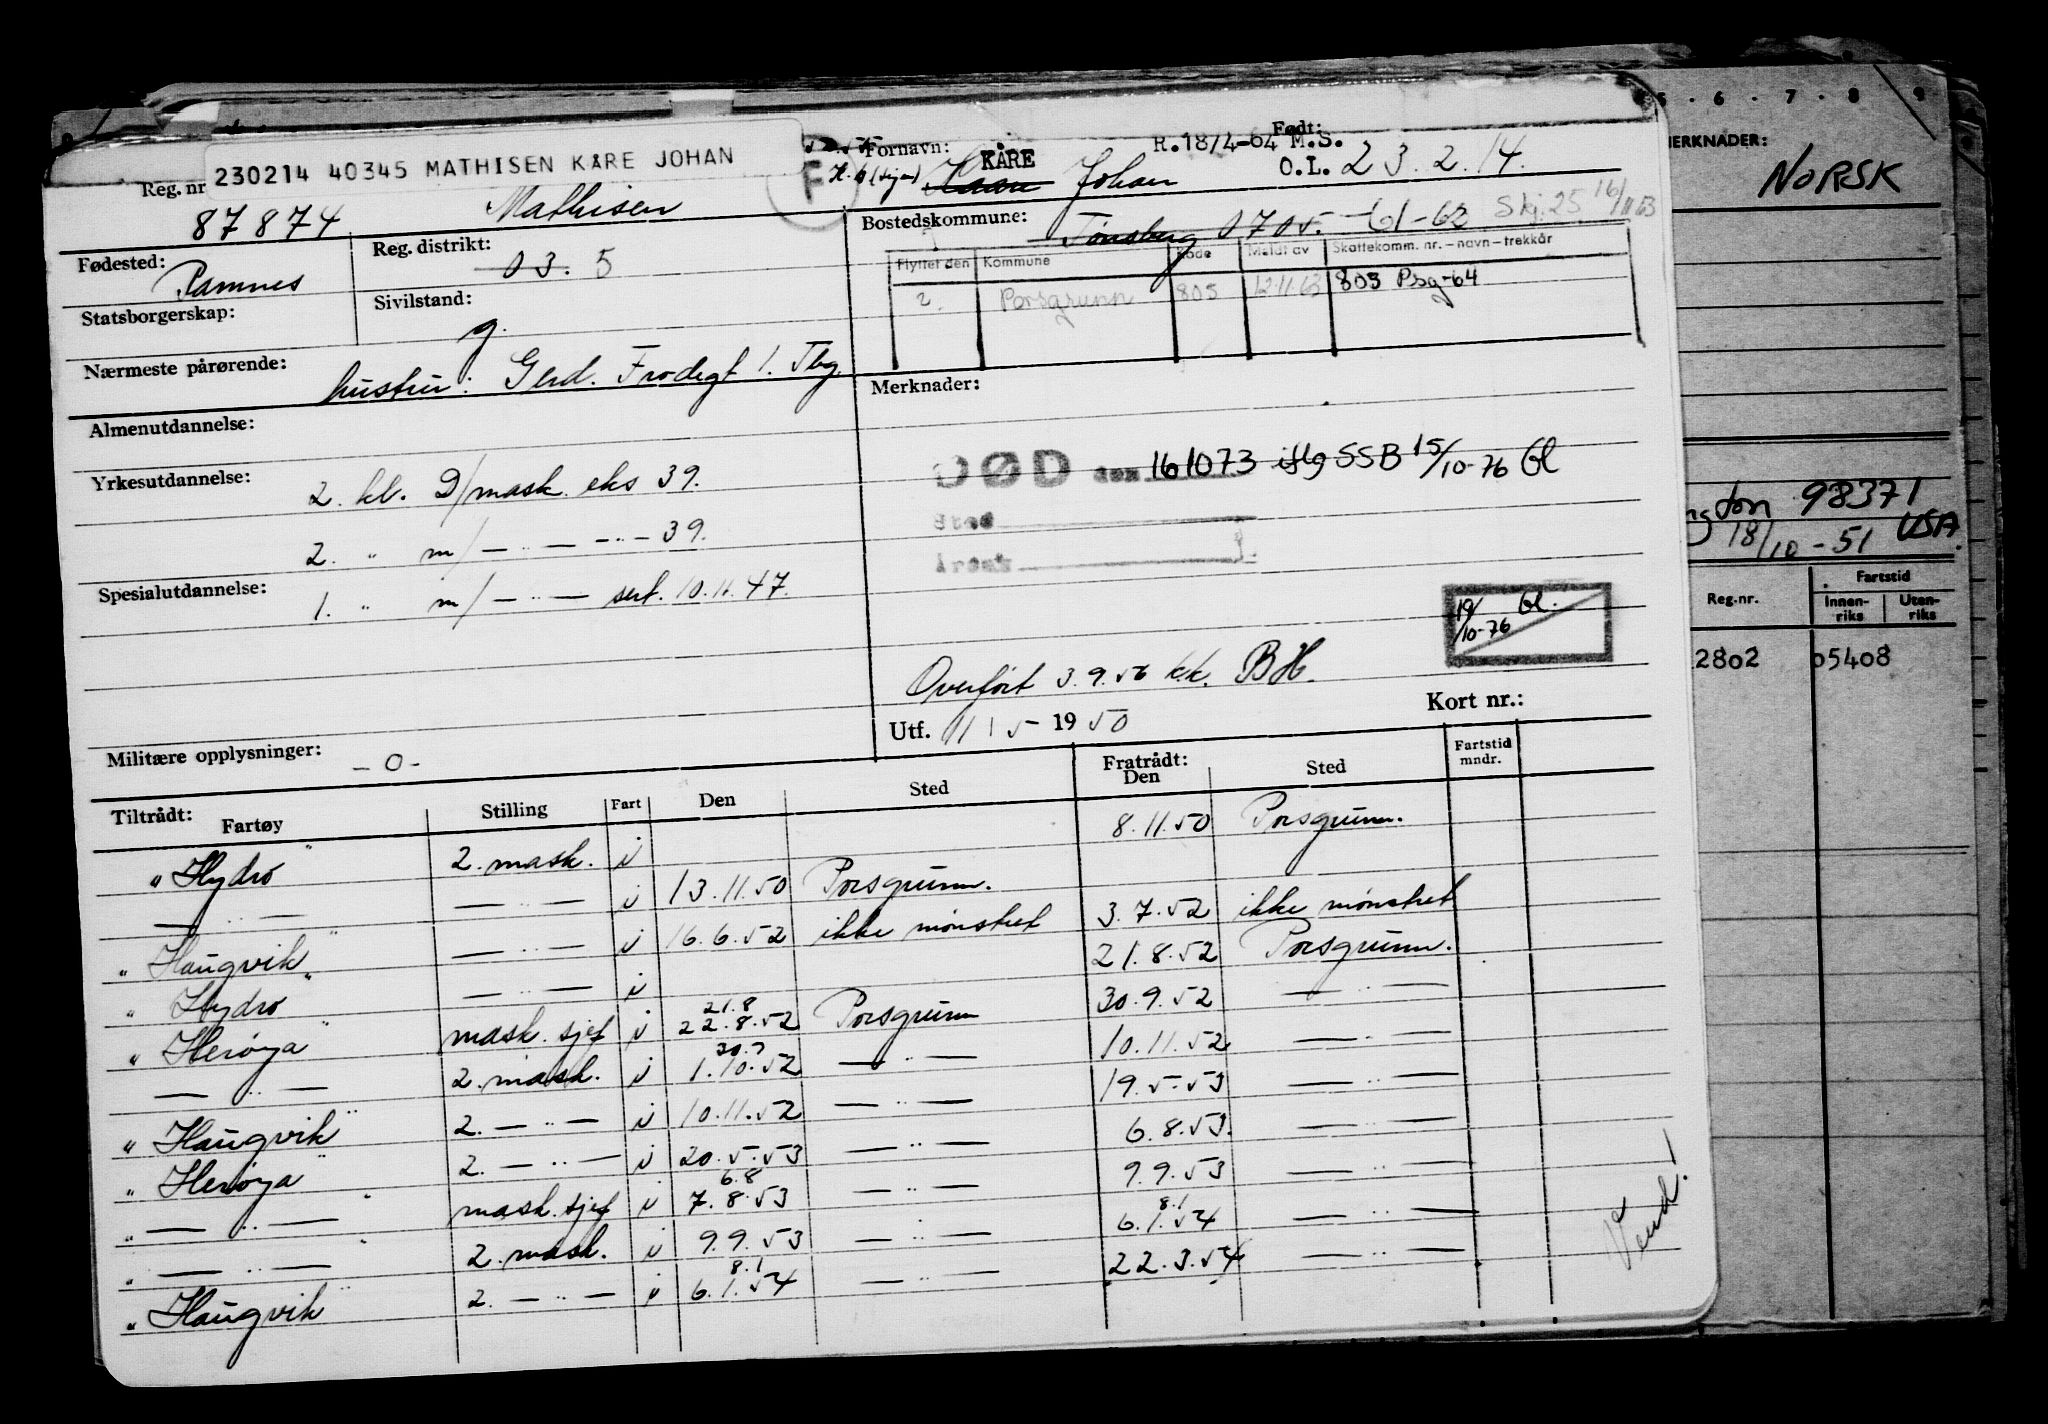 230214 40345 MATHISEN KÅRE JOHAN
F
Reg. nr
87874
Mathisen
Fornavn:
KÅRE
Johan
R.18/4-64 M.S.
Født:
O.L. 23.2.14.
Fødested:
Ramnes
Reg. distrikt:
03. 5
Bostedskommune:
Tønsberg 0705. -61-62 Skj. 25 16/11 63
Flyttet den
Kommune
Kode
Meldt av
Skattekomm. nr. – navn – trekkår
2.
Porsgrunn
805
12.11.63
805 Psg-64
Statsborgerskap:
Sivilstand:
g.
Nærmeste pårørende:
hustru: Gerd. Frodegt 1. Tbg.
Almenutdannelse:
Yrkesutdannelse:
2. kl. D/mask. eks 39.
2. " m/ — " — - " - 39.
Spesialutdannelse:
1. " m/ — " — sert. 10.11.47.
Merknader:
DØD den 161073 iflg SSB 15/10-76 Gl
Sted
Årsak
19/10-76 Gl.
Overført 3.9.56 k.k. BH.
Utf. 11 / 5 - 1950
Kort nr.:
Militære opplysninger:
-0-
Tiltrådt:
Fartøy
Stilling
Fart
Den
Sted
Fratrådt:
Den
Sted
Fartstid
mndr.
"Hydro" 2. mask. i 8.11.50 Porsgrunn.
— " — — " — i 13.11.50 Porsgrunn.
"Haugvik" — " — i 16.6.52 ikke mønstret 3.7.52 ikke mønstret
"Hydro" — " — i 21.8.52 Porsgrunn.
"Herøya" mask. sjef i 21.8 22.8.52 Porsgrunn 30.9.52 — " —
— " — 2. mask. i 30.9 1.10.52 — " — 10.11.52 — " —
"Haugvik" 2. — " — i 10.11.52 — " — 19.5.53 — " —
"Herøya" 2. — " — i 20.5.53 — " — 6.8.53. — " —
" — " — " mask. sjef i 6.8 7.8.53 — " — 9.9.53 — " —
" — " — " 2. mask. i 9.9.53 — " — 8.1 6.1.54 — " —
"Haugvik" 2. — " — i 8.1 6.1.54 — " — 22.3.54 — " —
Vend!
5 · 6 · 7 · 8 · 9
MERKNADER:
NORSK
98371
18/10-51 USA.
Reg.nr.
Fartstid
Innen-
riks
Uten-
riks
2802
05408